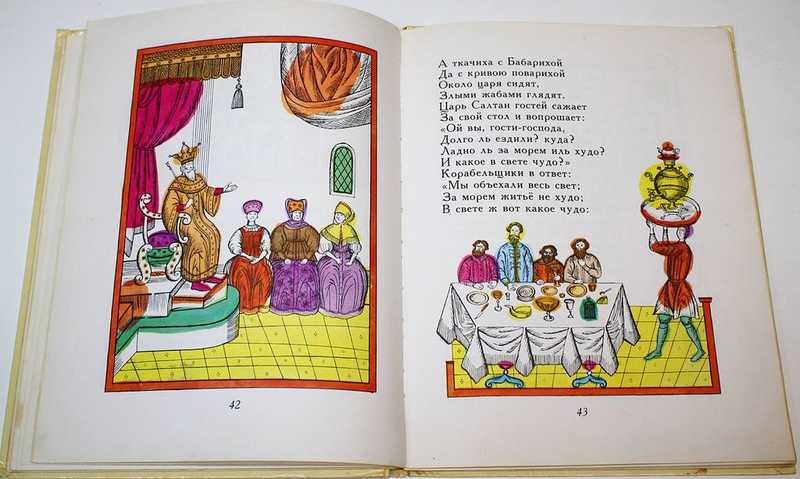 А ткачиха с Бабарихой
Да с кривою поварихой
Около царя сидят,
Злыми жабами глядят.
Царь Салтан гостей сажает
За свой стол и вопрошает:
«Ой вы, гости-господа,
Долго ль ездили? куда?
Ладно ль за морем иль худо?
И какое в свете чудо?»
Корабельщики в ответ:
«Мы объехали весь свет;
За морем житьё не худо;
В свете ж вот какое чудо:
42
43